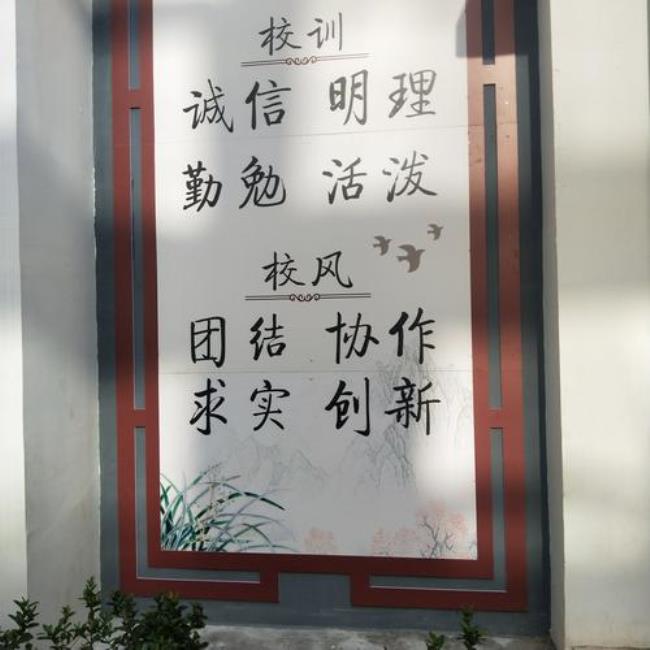 校训
诚信 明理
勤勉 活泼
校风
团结 协作
求实 创新